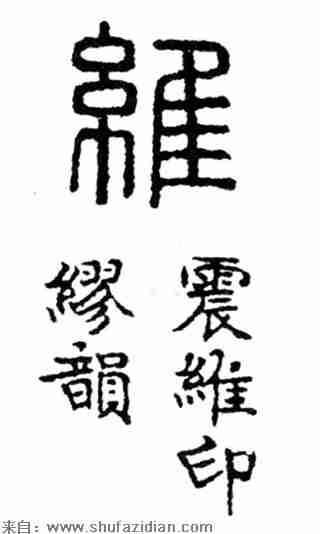 維
震維印
繆韻
来自：www.shufazidian.com